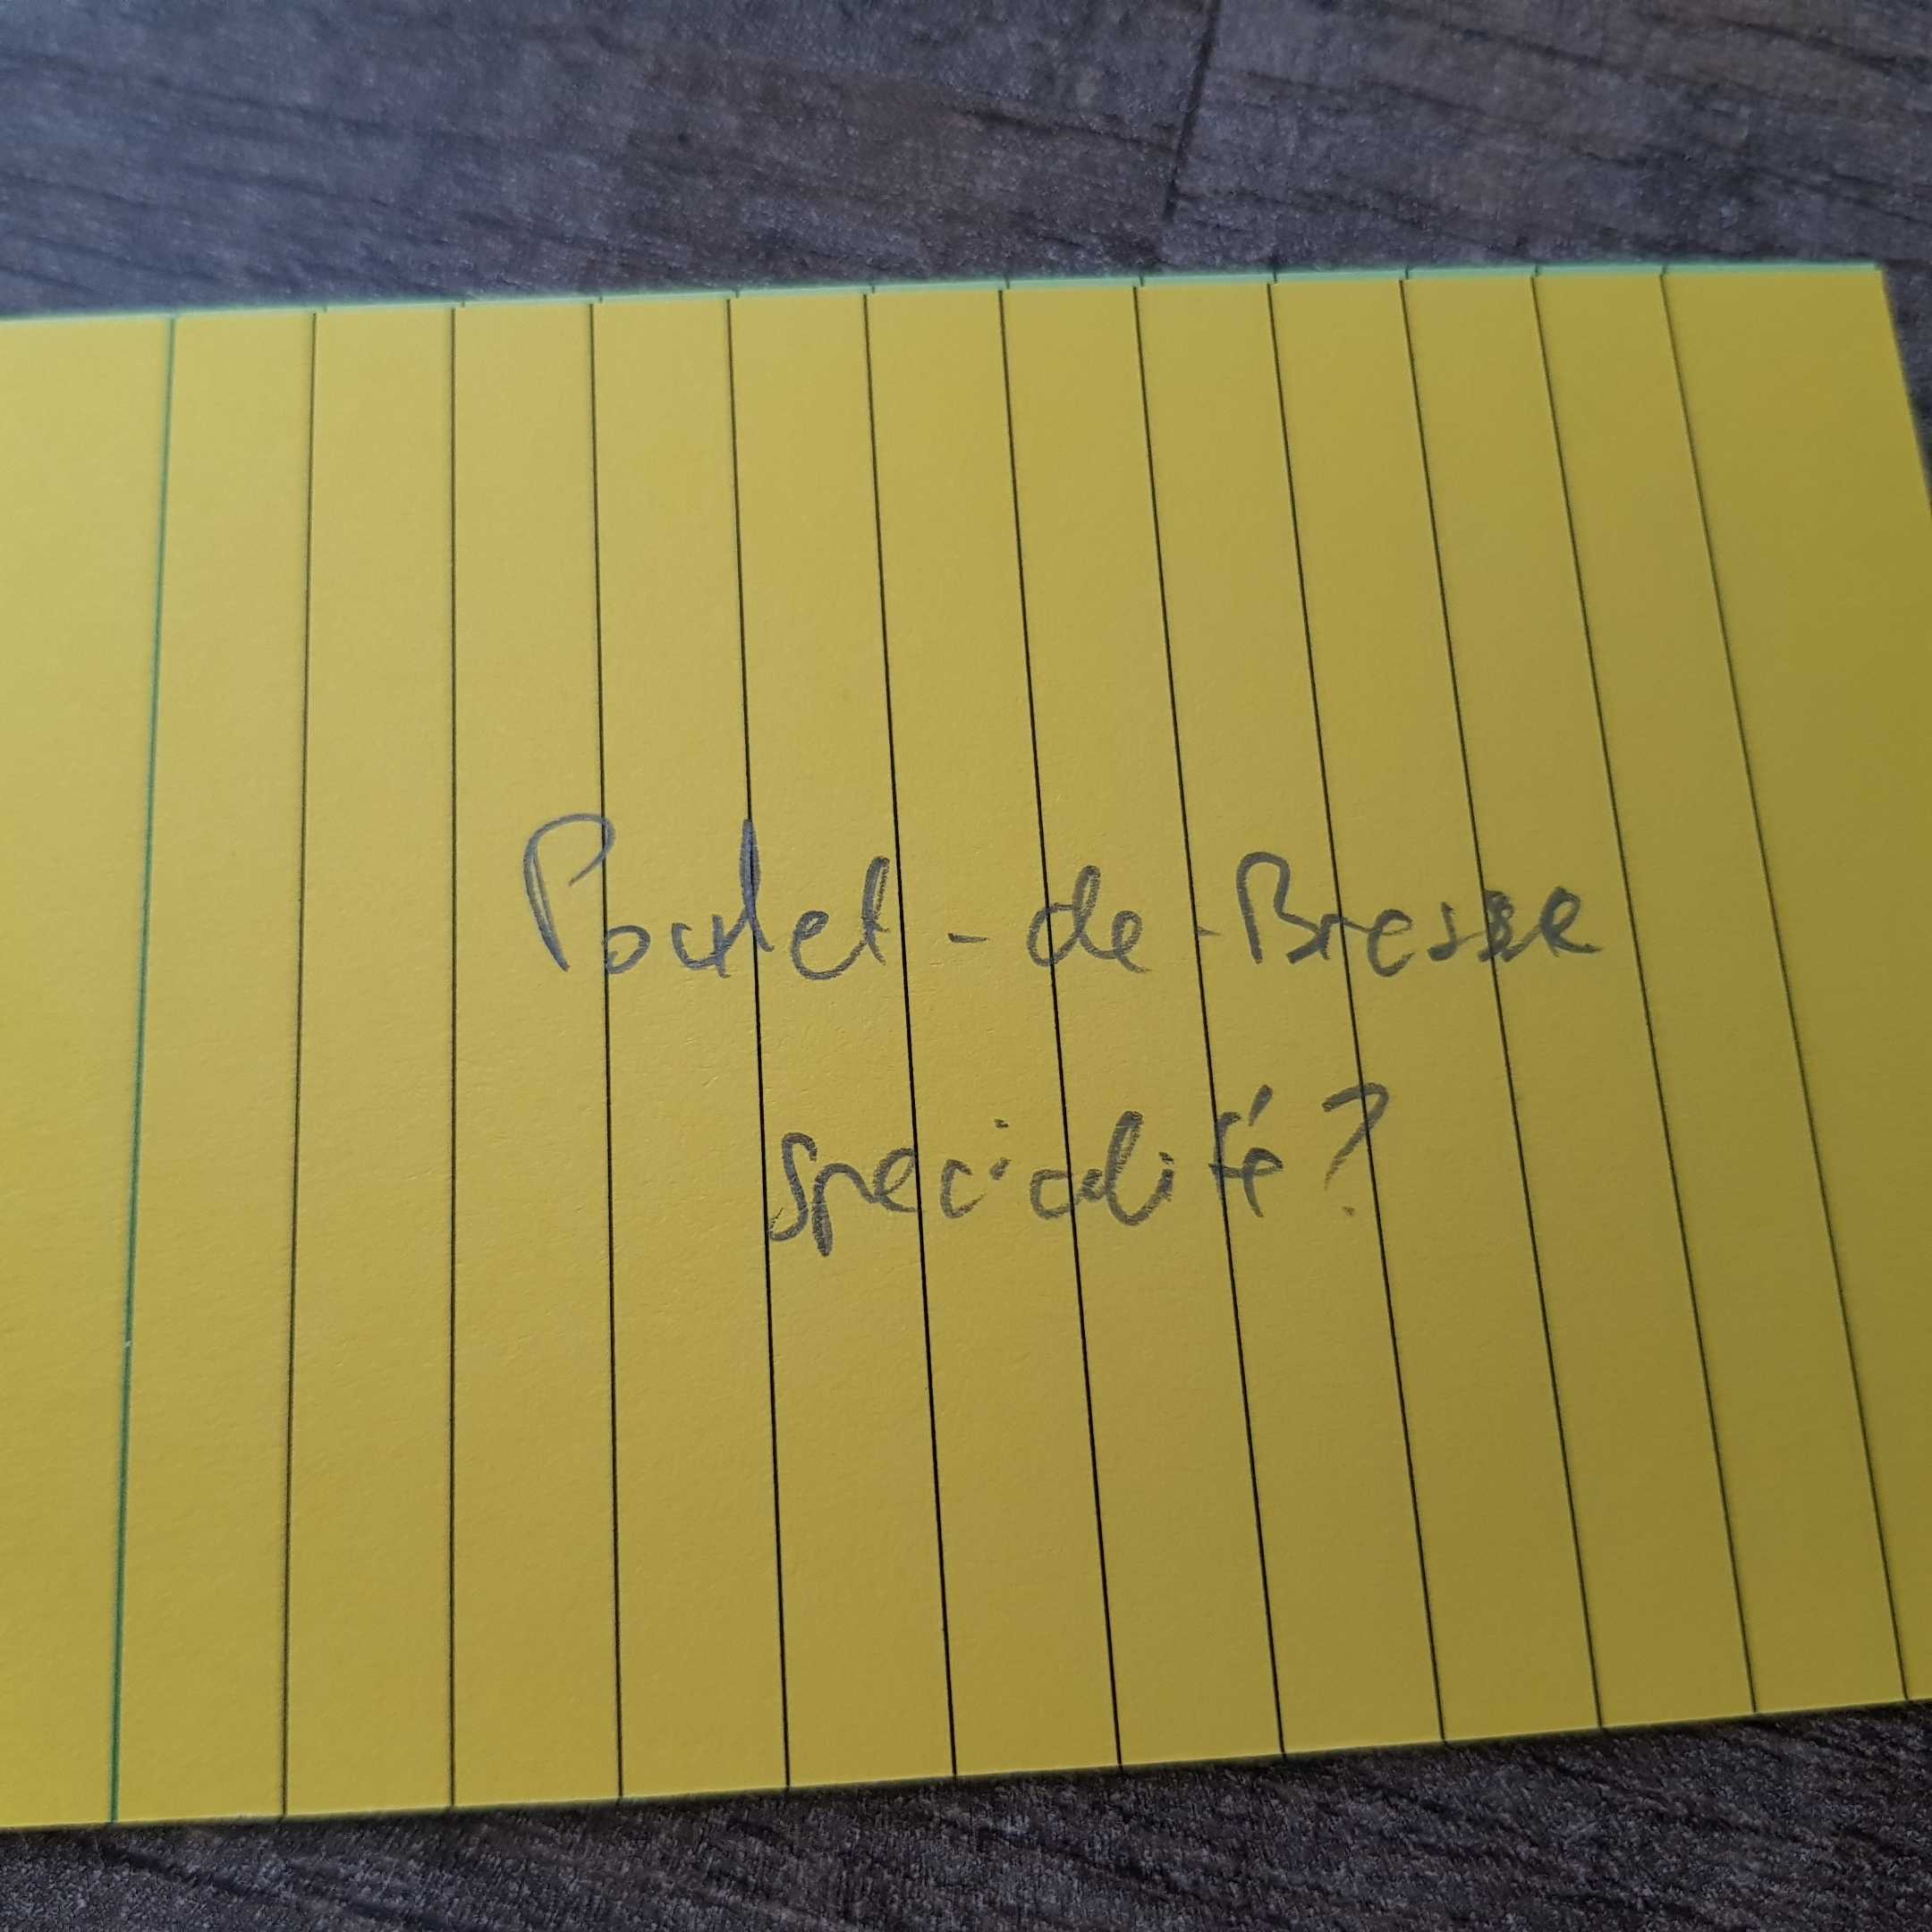 Poulet-de-Bresse
specialité?